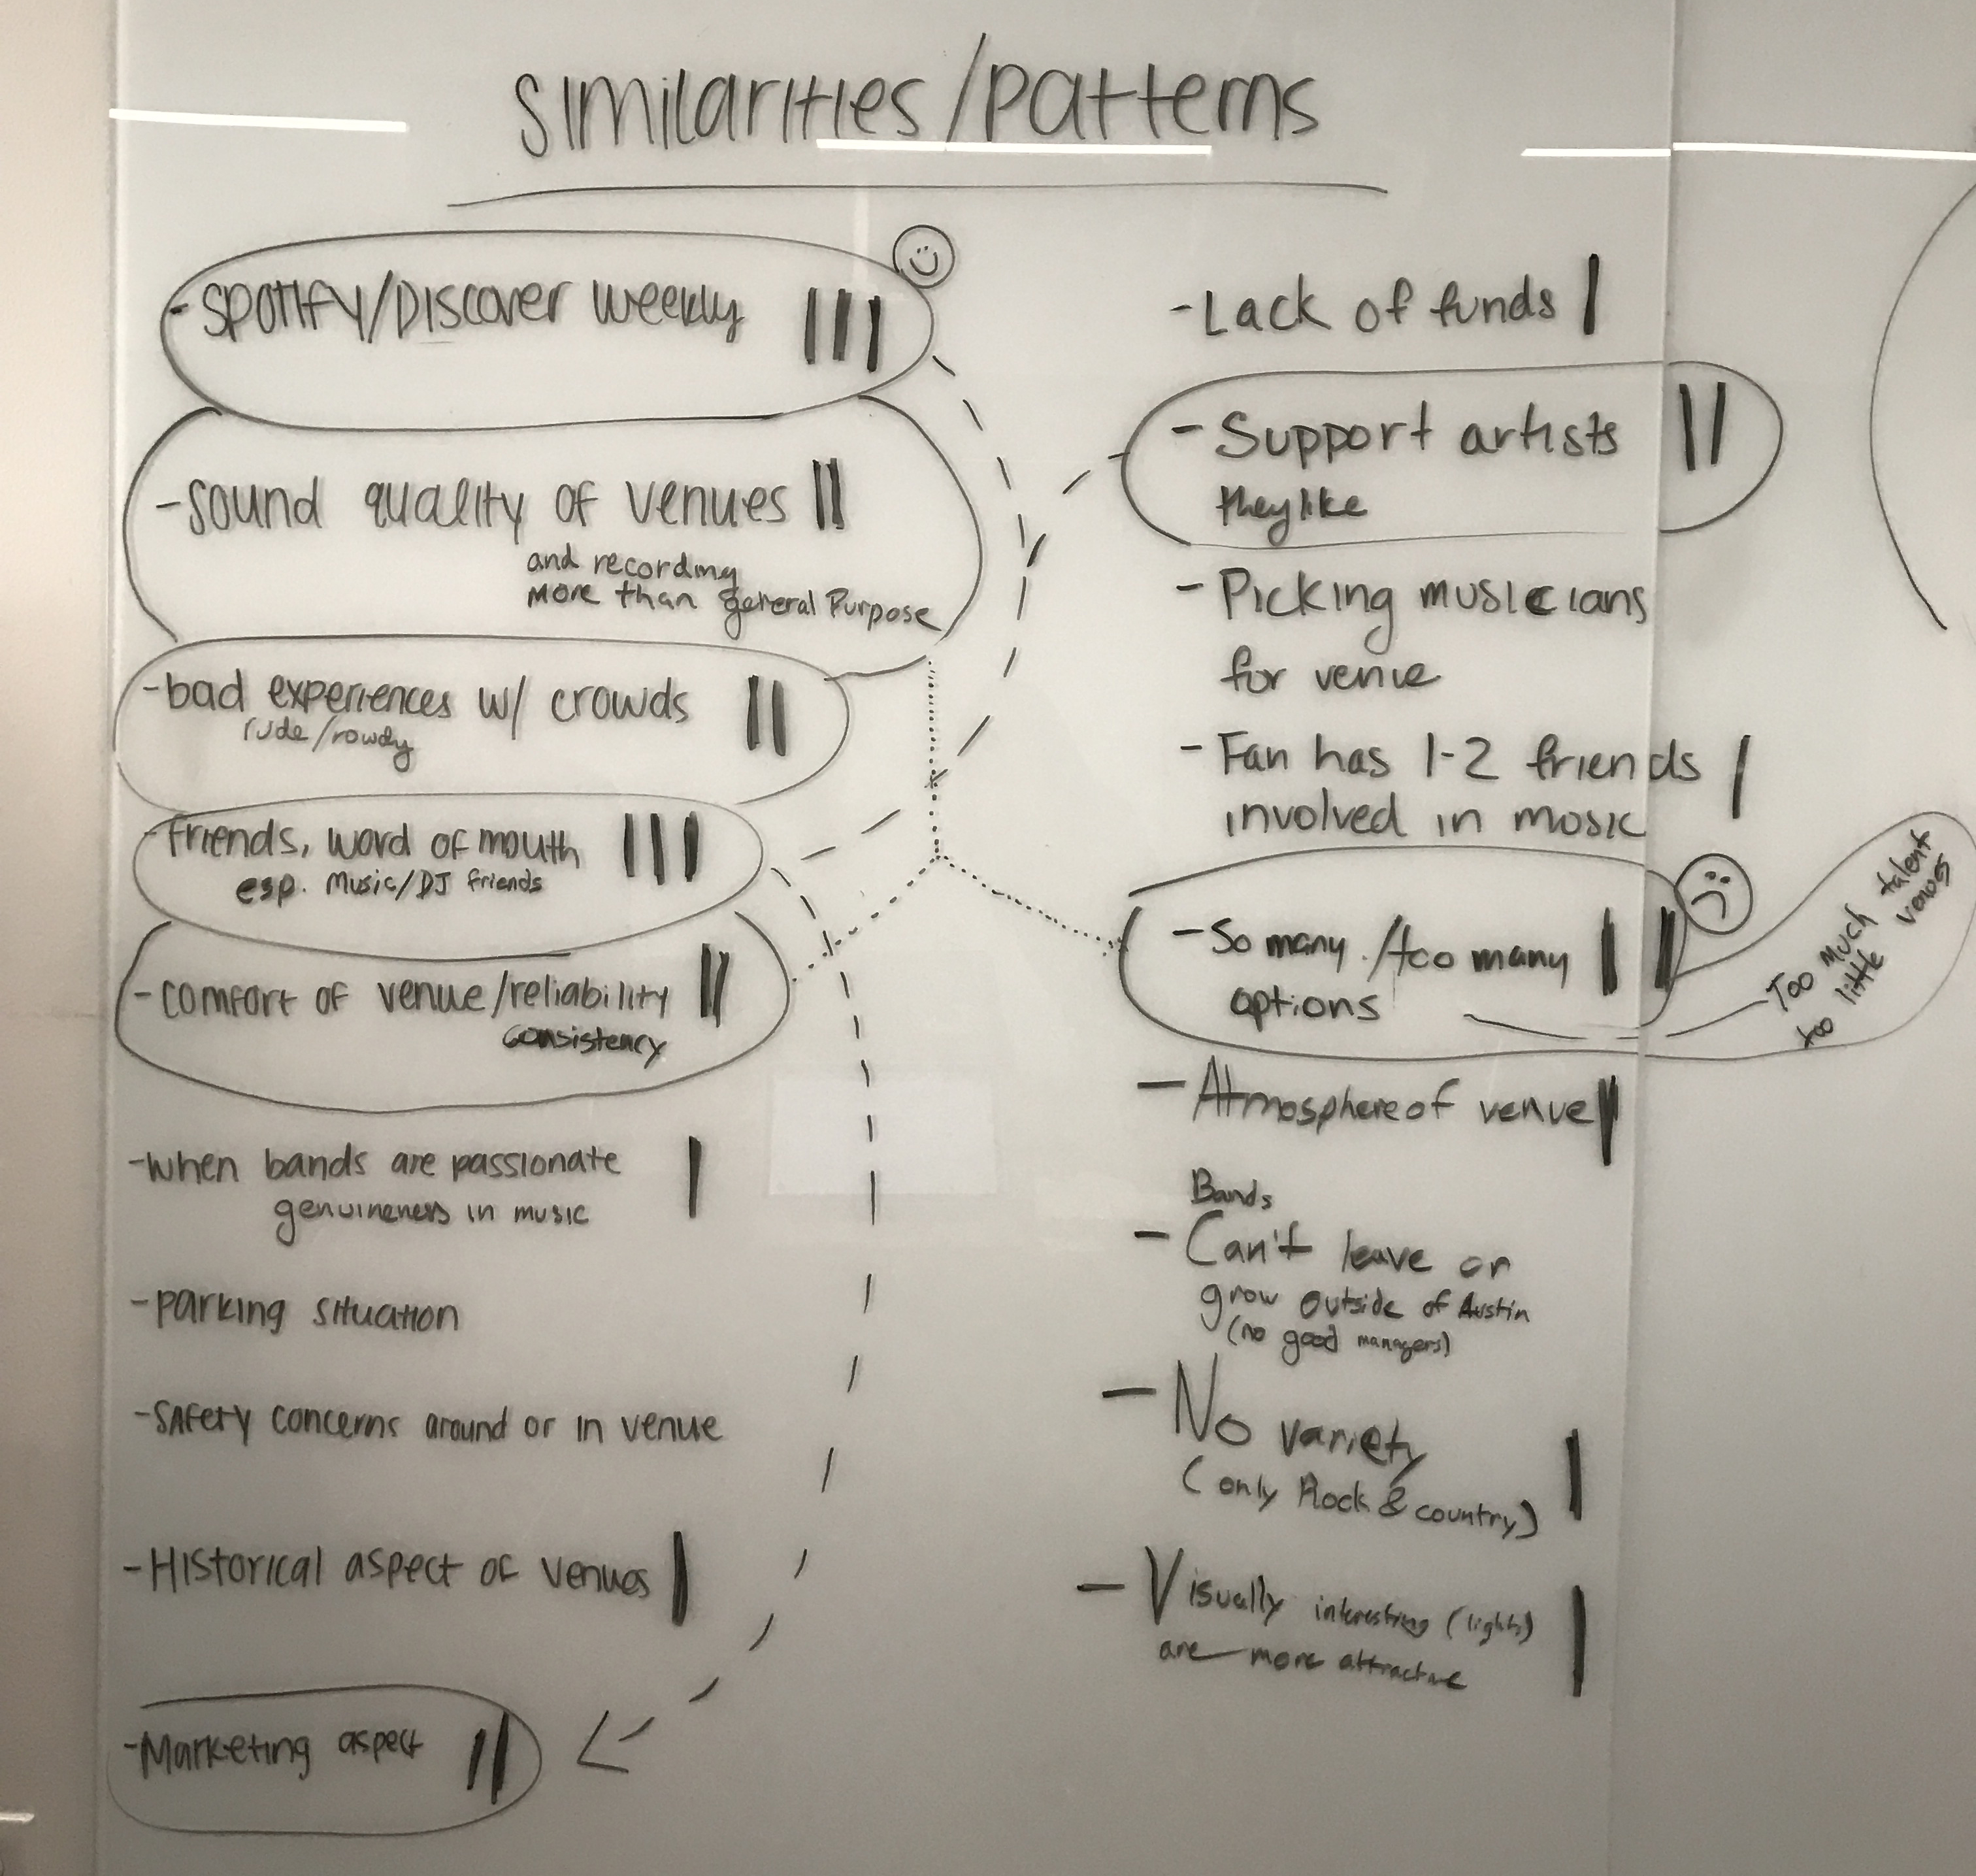 SIMILARITIES/PATTERNS
- SPOTIFY/DISCOVER WEEKLY |||
- SOUND QUALITY OF VENUES ||
and recording
more than general Purpose
- bad experiences w/ crowds ||
rude/rowdy
- friends, word of mouth |||
esp. Music/DJ friends
- comfort of venue/reliability ||
consistency
- when bands are passionate |
genuineness in music
- parking situation
- safety concerns around or in venue
- Historical aspect of venues |
- Marketing aspect ||
- Lack of funds |
- Support artists ||
they like
- Picking musicians
for venue
- Fan has 1-2 friends |
involved in music
- So many /too many ||
options
Too Much talent
too little venues
- Atmosphere of venue |
Bands
- Can't leave or
grow outside of Austin
(no good managers)
- No variety |
(only Rock & country)
- Visually interesting (lights) |
are more attractive